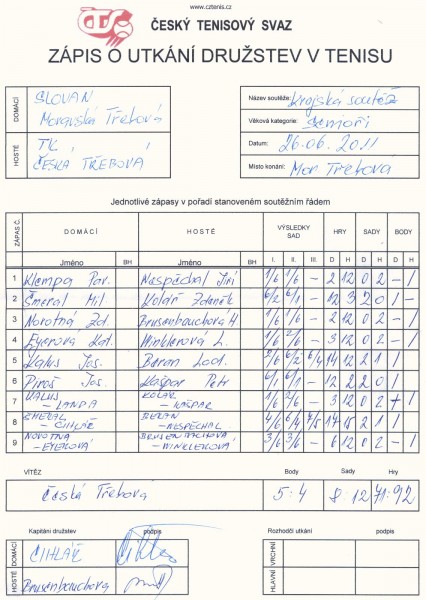 www.cztenis.cz
ČESKÝ TENISOVÝ SVAZ
ZÁPIS O UTKÁNÍ DRUŽSTEV V TENISU
DOMÁCÍ SLOVAN
Moravská Třebová
HOSTÉ TK,
ČESKÁ TŘEBOVÁ
Název soutěže: Krajská soutěž
Věková kategorie: Senioři
Datum: 26.06.2011
Místo konání: Mor Třebová
Jednotlivé zápasy v pořadí stanoveném soutěžním řádem
ZÁPAS Č. DOMÁCÍ HOSTÉ VÝSLEDKY SAD HRY SADY BODY
Jméno BH Jméno BH I. II. III. D H D H D H
1 Klempa Par. Nespěchal Jiří 1/6 1/6 – 2 12 0 2 – 1
2 Šmeral Mil Kolář Zdeněk 6/2 6/1 – 12 3 2 0 1 –
3 Novotná Zd. Brusenbauchová H 1/6 1/6 – 2 12 0 2 – 1
4 Winklerová L. 1/6 2/6 – 3 12 0 2 – 1
5 Valus Jos. Beran Lad. 2/6 6/2 6/4 14 12 2 1 1
6 Piroš Jos. Kašpar Petr 6/1 6/1 – 12 2 2 0 1
7 VALUS KOLÁŘ 1/6 2/6 – 3 12 0 2 1
– LANDA – KAŠPAR
8 BERAN 4/6 6/4 7/5 17 15 2 1 1
– CIHLÁŘ – NESPĚCHAL
9 NOVOTNÁ 3/6 3/6 – 6 12 0 2 – 1
– WINKLEROVÁ
VÍTĚZ Body Sady Hry
Česká Třebová 5:4 8:12 71:92
Kapitáni družstev podpis
DOMÁCÍ CIHLÁŘ
HOSTÉ Brusenbauchová
Rozhodčí utkání podpis
VRCHNÍ
HLAVNÍ